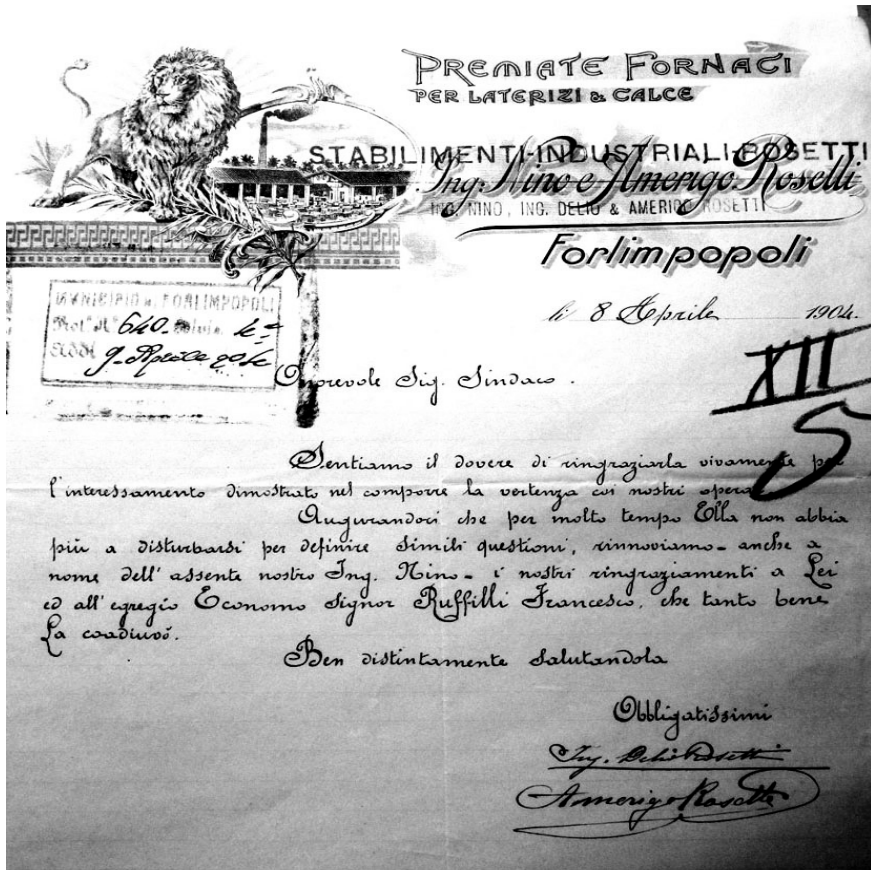 PREMIATE FORNACI
PER LATERIZI & CALCE
STABILIMENTI-INDUSTRIALI-ROSETTI
Ing. Nino e Amerigo Rosetti
ING. NINO, ING. DELIO & AMERIGO ROSETTI
Forlimpopoli
MUNICIPIO di FORLIMPOPOLI
Prot. N° 640.
Addì 9. Aprile 904
li 8 Aprile 1904.
XII
5
Onorevole Sig. Sindaco.
Sentiamo il dovere di ringraziarla vivamente per
l'interessamento dimostrato nel comporre la vertenza coi nostri operai
Augurandoci che per molto tempo Ella non abbia
più a disturbarsi per definire simili questioni, rinnoviamo - anche a
nome dell'assente nostro Ing. Nino - i nostri ringraziamenti a Lei
ed all'egregio Economo Signor Ruffilli Francesco, che tanto bene
La coadiuvò.
Ben distintamente salutandola
Obbligatissimi
Ing. Delio Rosetti
Amerigo Rosetti